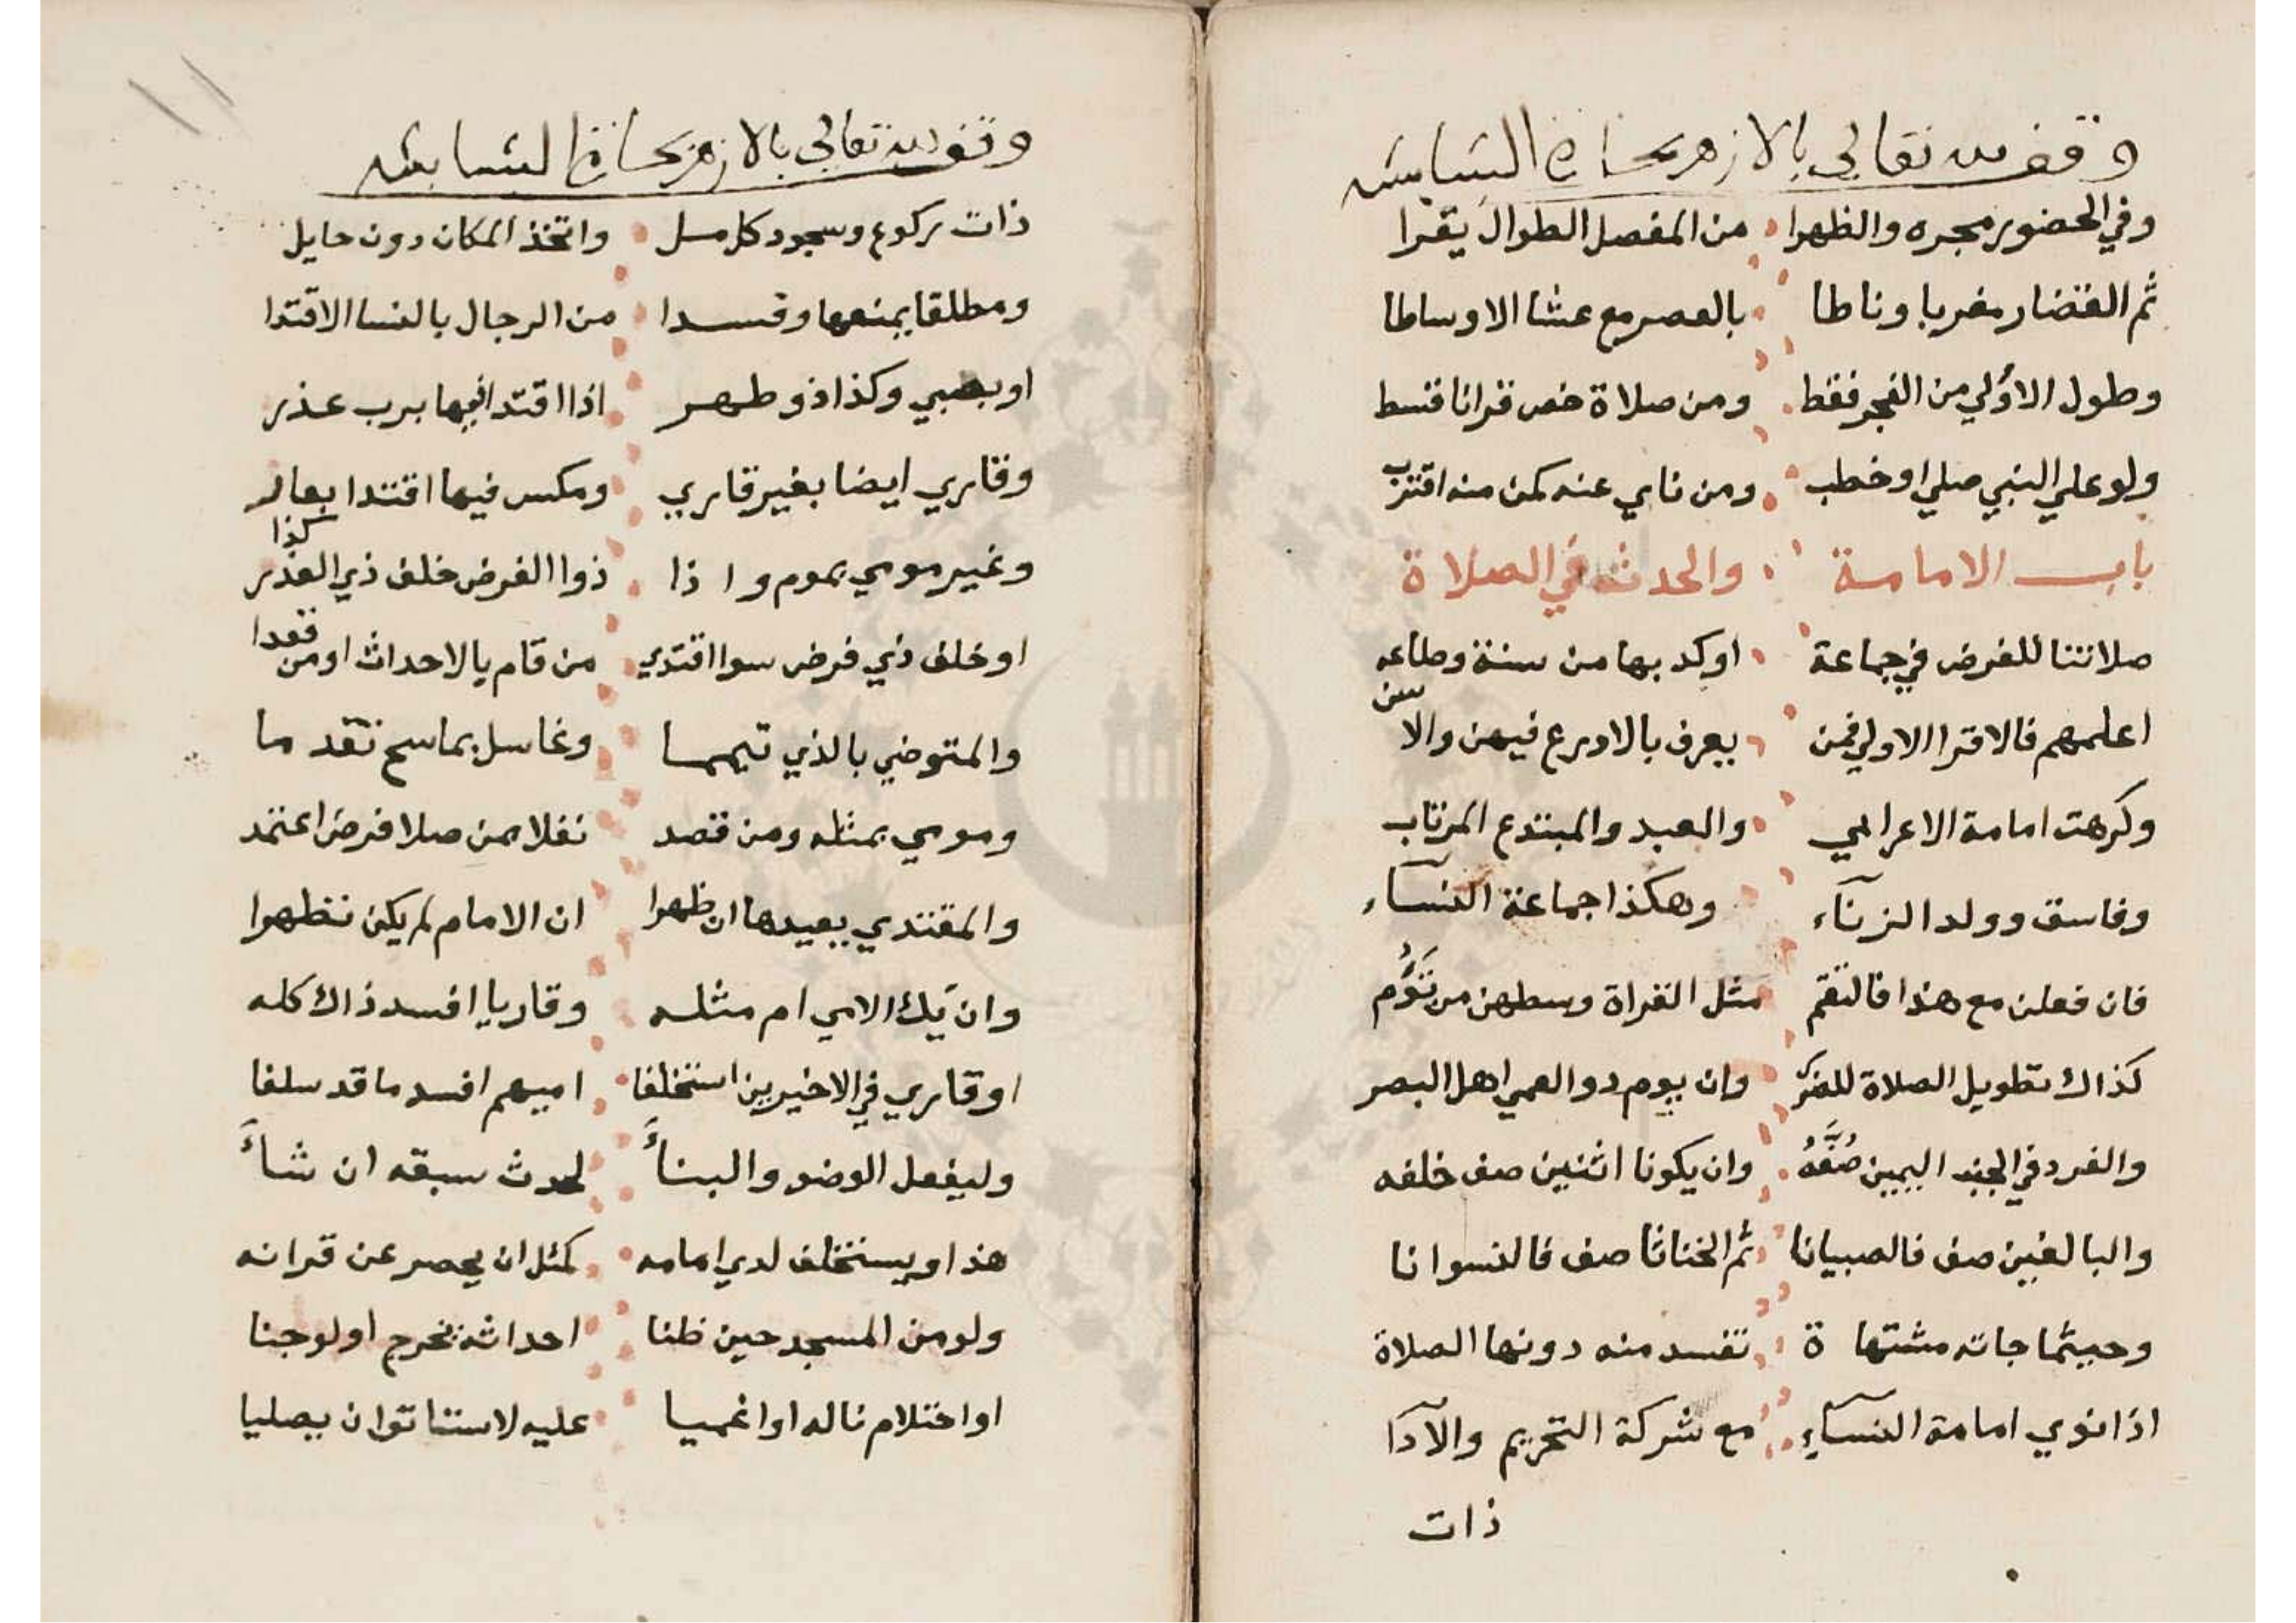 وقف لله تعالى بالازهر بحارة الشابشه
وفي الحضور مجره والظهرا من المفصل الطوال يقرا
ثم القصار مغربا وناطا بالعصر مع عشا الاوساطا
وطول الاولي من الفجر فقط ومن صلاة خص قرانا قسط
ولو علي النبي صلي او خطب ومن ناي عنه كمن منه اقترب
باب الامامة والحدث في الصلاة
صلاتنا للفرض في جماعة اوكد بها من سنة وطاعه
اعلمهم فالاقرا الاولي فمن يعرف بالاورع فيهن والاسن
وكرهت امامة الاعرابي والعبد والمبتدع المرتاب
وفاسق وولد الزنآء وهكذا جماعة النسآء
فان فعلن مع هذا فالتقم مثل القراة وسطهن من تَؤُم
كذاك تطويل الصلاة للضرر وان يوم ذو العمي اهل البصر
والفرد في الجنب اليمين صُفَّهُ وان يكونا اثنين صف خلفه
والبالغين صف فالصبيانا ثم الخناثا صف فالنسوانا
وحيثما جات مشتهاة تفسد منه دونها الصلاة
اذا نوي امامة النسآءِ مع شركة التحريم والآدآ
ذات
وقف لله تعالى بالازهر بحارة الشابشه
ذات ركوع وسجود كامل واتخذ المكان دون حايل
ومطلقا يمنعها وفسدا من الرجال بالنسا الاقتدا
او بصبي وكذا ذو طهر اذا اقتدا فيها برب عذر
وقاري ايضا بغير قاري ومكس فيها اقتدا بعار
وغير مومي بموم واذا ذوا الفرض خلف ذي العذر كذا
او خلف ذي فرض سوا اقتدي من قام يالاحداث او من قعدا
والمتوضي بالذي تيمما وغاسل بماسح تقدما
ومومي بمثله ومن قصد نفلا بمن صلا فرض اعتمد
والمقتدي يعيدها ان ظهرا ان الامام لم يكن تطهرا
وان يَك الامي ام مثله وقاريا افسد ذاك كله
او قاري في الاخيرين استخلفا اميهم افسد ما قد سلفا
وليفعل الوضو والبنأَ لحدث سبقه ان شاءَ
هذا ويستخلف لدي امامه كمثل ان يحصر عن قرانه
ولو من المسجد حين ظنا احداثه يخرج او لو جنا
او احتلام ناله او اغميا عليه لاستاتوان يصليا